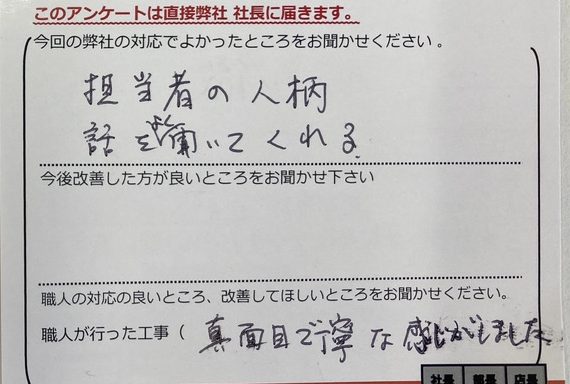 このアンケートは直接弊社 社長に届きます。
今回の弊社の対応でよかったところをお聞かせください。
担当者の人柄
話をよく聞いてくれる
今後改善した方が良いところをお聞かせ下さい
職人の対応の良いところ、改善してほしいところをお聞かせください。
職人が行った工事（ 真面目で丁寧な感じがしました
社長 館長 店長